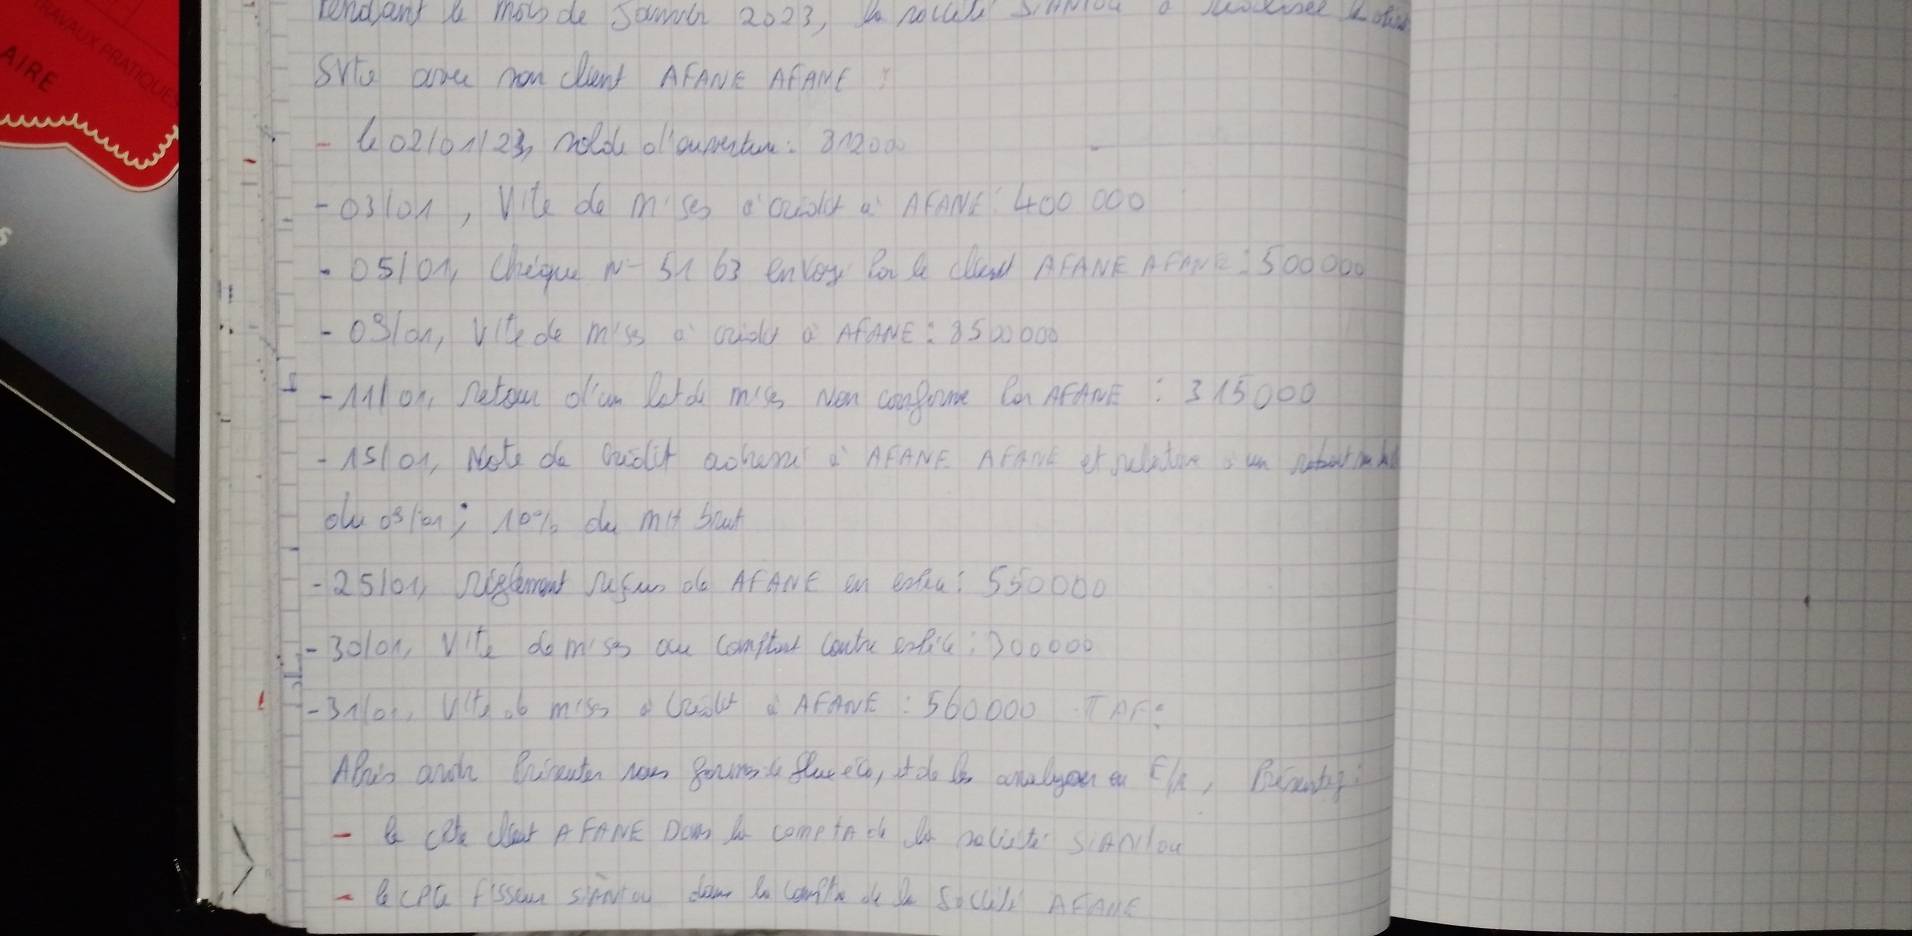 TRAVAUX PRATIQUES
AIRE
Pendant le mois de Janvier 2023, la société SIANTOU a réalisée
svte avec son client AFANE AFANE :
- le 02/01/23, solde d'ouverture : 312000
- 03/01, Vte de m/ses à crédit à AFANE : 400 000
- 05/01, Chèque N° 5163 envoyé par le client AFANE AFANE : 500000
- 09/01, Vte de m/ses à crédit à AFANE : 8500000
- 11/01, Retour d'un lot de m/ses non conforme par AFANE : 315000
- 15/01, Note de crédit adressé à AFANE AFANE et relative à un
du 09/01 ; 10% du mtt brut
- 25/01, règlement reçus de AFANE en espèce : 550000
- 30/01, Vte de m/ses au comptant contre espèce : 700000
- 31/01, Vte de m/ses à crédit à AFANE : 560000 TAF :
Après avoir présenter sous forme de flux éco, et de les analyser en E/R, Présentez :
- le cpte client AFANE Dans la compta de la société SIANTOU
- le cpte f/sseur SIANTOU dans la compta de la Société AFANE